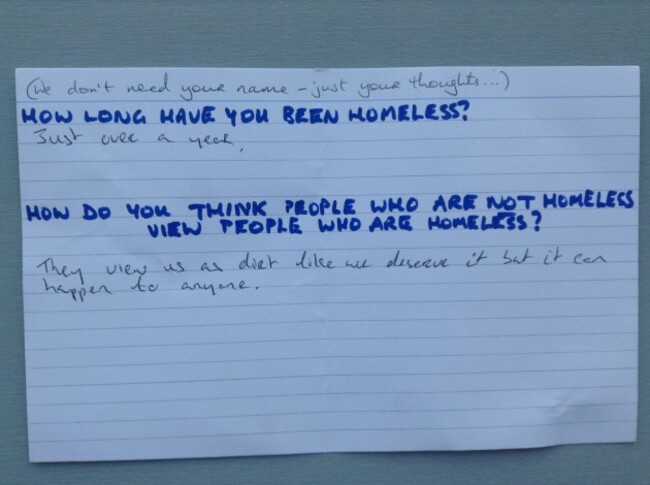 (We don't need your name - just your thoughts...)
HOW LONG HAVE YOU BEEN HOMELESS?
Just over a year.
HOW DO YOU THINK PEOPLE WHO ARE NOT HOMELESS
VIEW PEOPLE WHO ARE HOMELESS?
They view us as dirt like we deserve it but it can
happen to anyone.